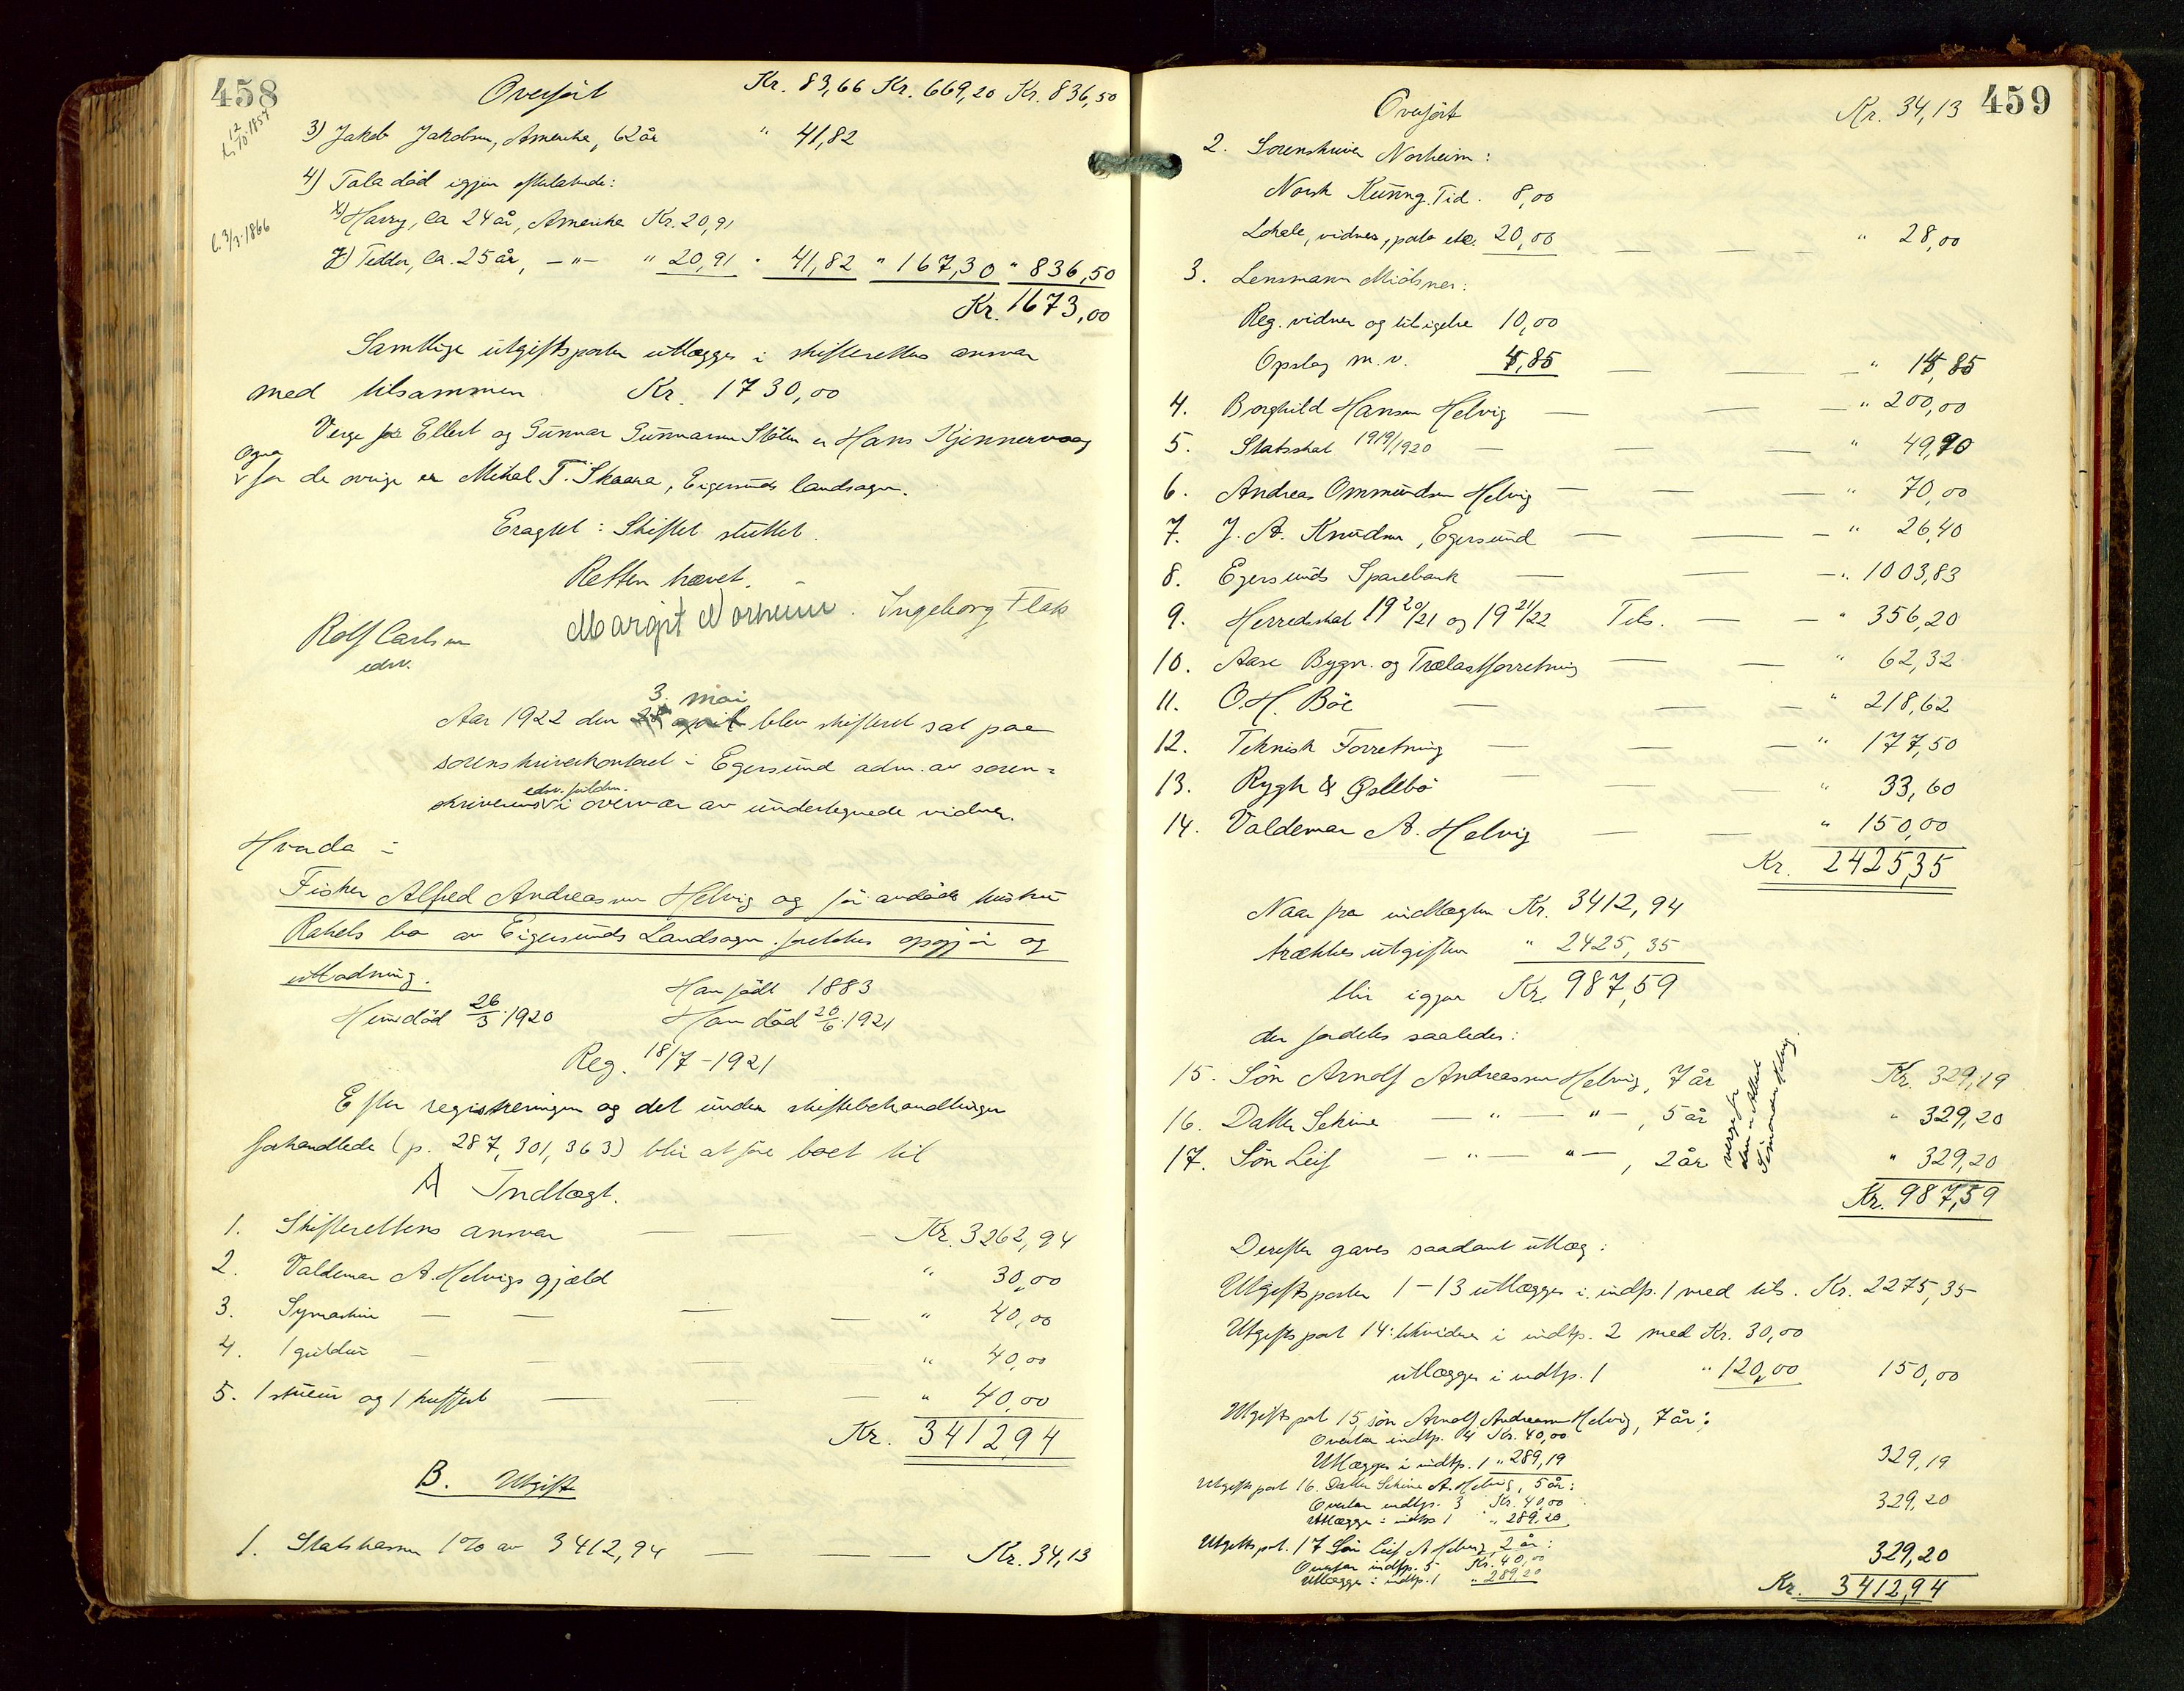 458
Overført Kr. 83,66 Kr. 669,20 Kr. 836,50
3) Jakob Jakobsen, Amerika, 62 år " 41,82
4) Tala död igjen efterlatende:
x) Harry, ca 24 år, Amerika Kr. 20,91
f. 3/3-1866
y) Teddor, ca. 25 år, — " — " 20,91 " 41,82 " 167,30 " 836,50
Kr. 1673,00
Samtlige utgiftsposter utlægges i skifterettens ansvar
med tilsammen Kr. 1730,00
Verge for Ellert og Gunnar Gunnarsen Stölen er Hans Kjennervaag
Ogna
v for de övrige er Mikal T. Skaara, Eigersunds landsogn.
Eragtet: Skiftet sluttet.
Retten hævet.
Rolf Carlsen Margit Norheim. Ingeborg Flak
edsv.
3. mai
Aar 1922 den blev skifteret sat paa
sorenskriverkontoret i Egersund adm. av soren=
edsv. fuldm.
skriverens v i overvær av undertegnede vidner.
Hvorda:
Fisker Alfred Andreassen Helvig og før avdøde hustru
Rakels bo av Eigersunds Landsogn foretokes opgjör og
utlodning.
Han födt 1883
Hun död 26/3-1920 Han död 20/6-1921
Reg. 18/7-1921
Efter registreringen og det under skiftebehandlingen
forhandlede (p. 287, 301, 363) blir at före boet til
A Indtægt.
1. Skifterettens ansvar — — — Kr. 3262,94
2. Valdemar A. Helvigs gjæld " 30,00
3. Symaskin — — — — " 40,00
4. 1 guldur — — — — " 40,00
5. 1 stueur og 1 kuffert — — — " 40,00
Kr. 3412,94
B. Utgift
1. Statskassen 1% av 3412,94 — — — Kr. 34,13
459
Overført Kr. 34,13
2. Sorenskriver Norheim:
Norsk Kunng. Tid. 8,00
Lokale, vidner, porto etc. 20,00 — — — " 28,00
3. Lensmann Midsner:
Reg. vidner og tilsigelse 10,00
Opslag m.v. 4,85 — — — " 14,85
4. Borghild Hansen Helvig — — — " 200,00
5. Statsskat 1919/1920 — — — " 49,90
6. Andreas Ommundsen Helvig — — — " 70,00
7. J. A. Knudsen, Egersund — — — " 26,40
8. Egersunds Sparebank — — — " 1003,83
9. Herredskat 1920/21 og 1921/22 Tils. — — " 356,20
10. Aase Bygn. og Trælastforretning — — " 62,32
11. O. H. Böe — — — " 218,62
12. Teknisk Forretning — — — " 177,50
13. Rygh & Gsllbö — — — " 33,60
14. Valdemar A. Helvig — — " 150,00
Kr. 2425,35
Naar fra indtægten Kr. 3412,94
trækkes utgiften " 2425,35
blir igjen Kr. 987,59
der fordeles saaledes:
15. Sön Arnolf Andreassen Helvig, 7 år Kr. 329,19
16. Datter Sekine — " — " —, 5 år " 329,20
17. Sön Leif — " — " —, 2 år " 329,20
Kr. 987,59
Derefter gaves saadant utlæg:
Utgiftsposter 1-13 utlægges i indtp. 1 med tils. Kr. 2275,35
Utgiftspost 14: likvideres i indtp. 2 med Kr. 30,00
utlægges i indtp. 1 " 120,00 150,00
Utgiftspost 15, sön Arnolf Andreassen Helvig, 7 år:
Overtar indtp. 4 Kr. 40,00
Utlægges i indtp. 1 " 289,19 329,19
Utgiftspost 16. Datter Sekine A. Helvig, 5 år:
Overtar indtp. 3 Kr. 40,00 329,20
Utlægges i indtp. 1 " 289,20
Utgiftspost. 17 Sön Leif A. Helvig, 2 år:
Overtar indtp. 5 Kr. 40,00 329,20
Utlægges i indtp. 1 " 289,20
Kr. 3412,94